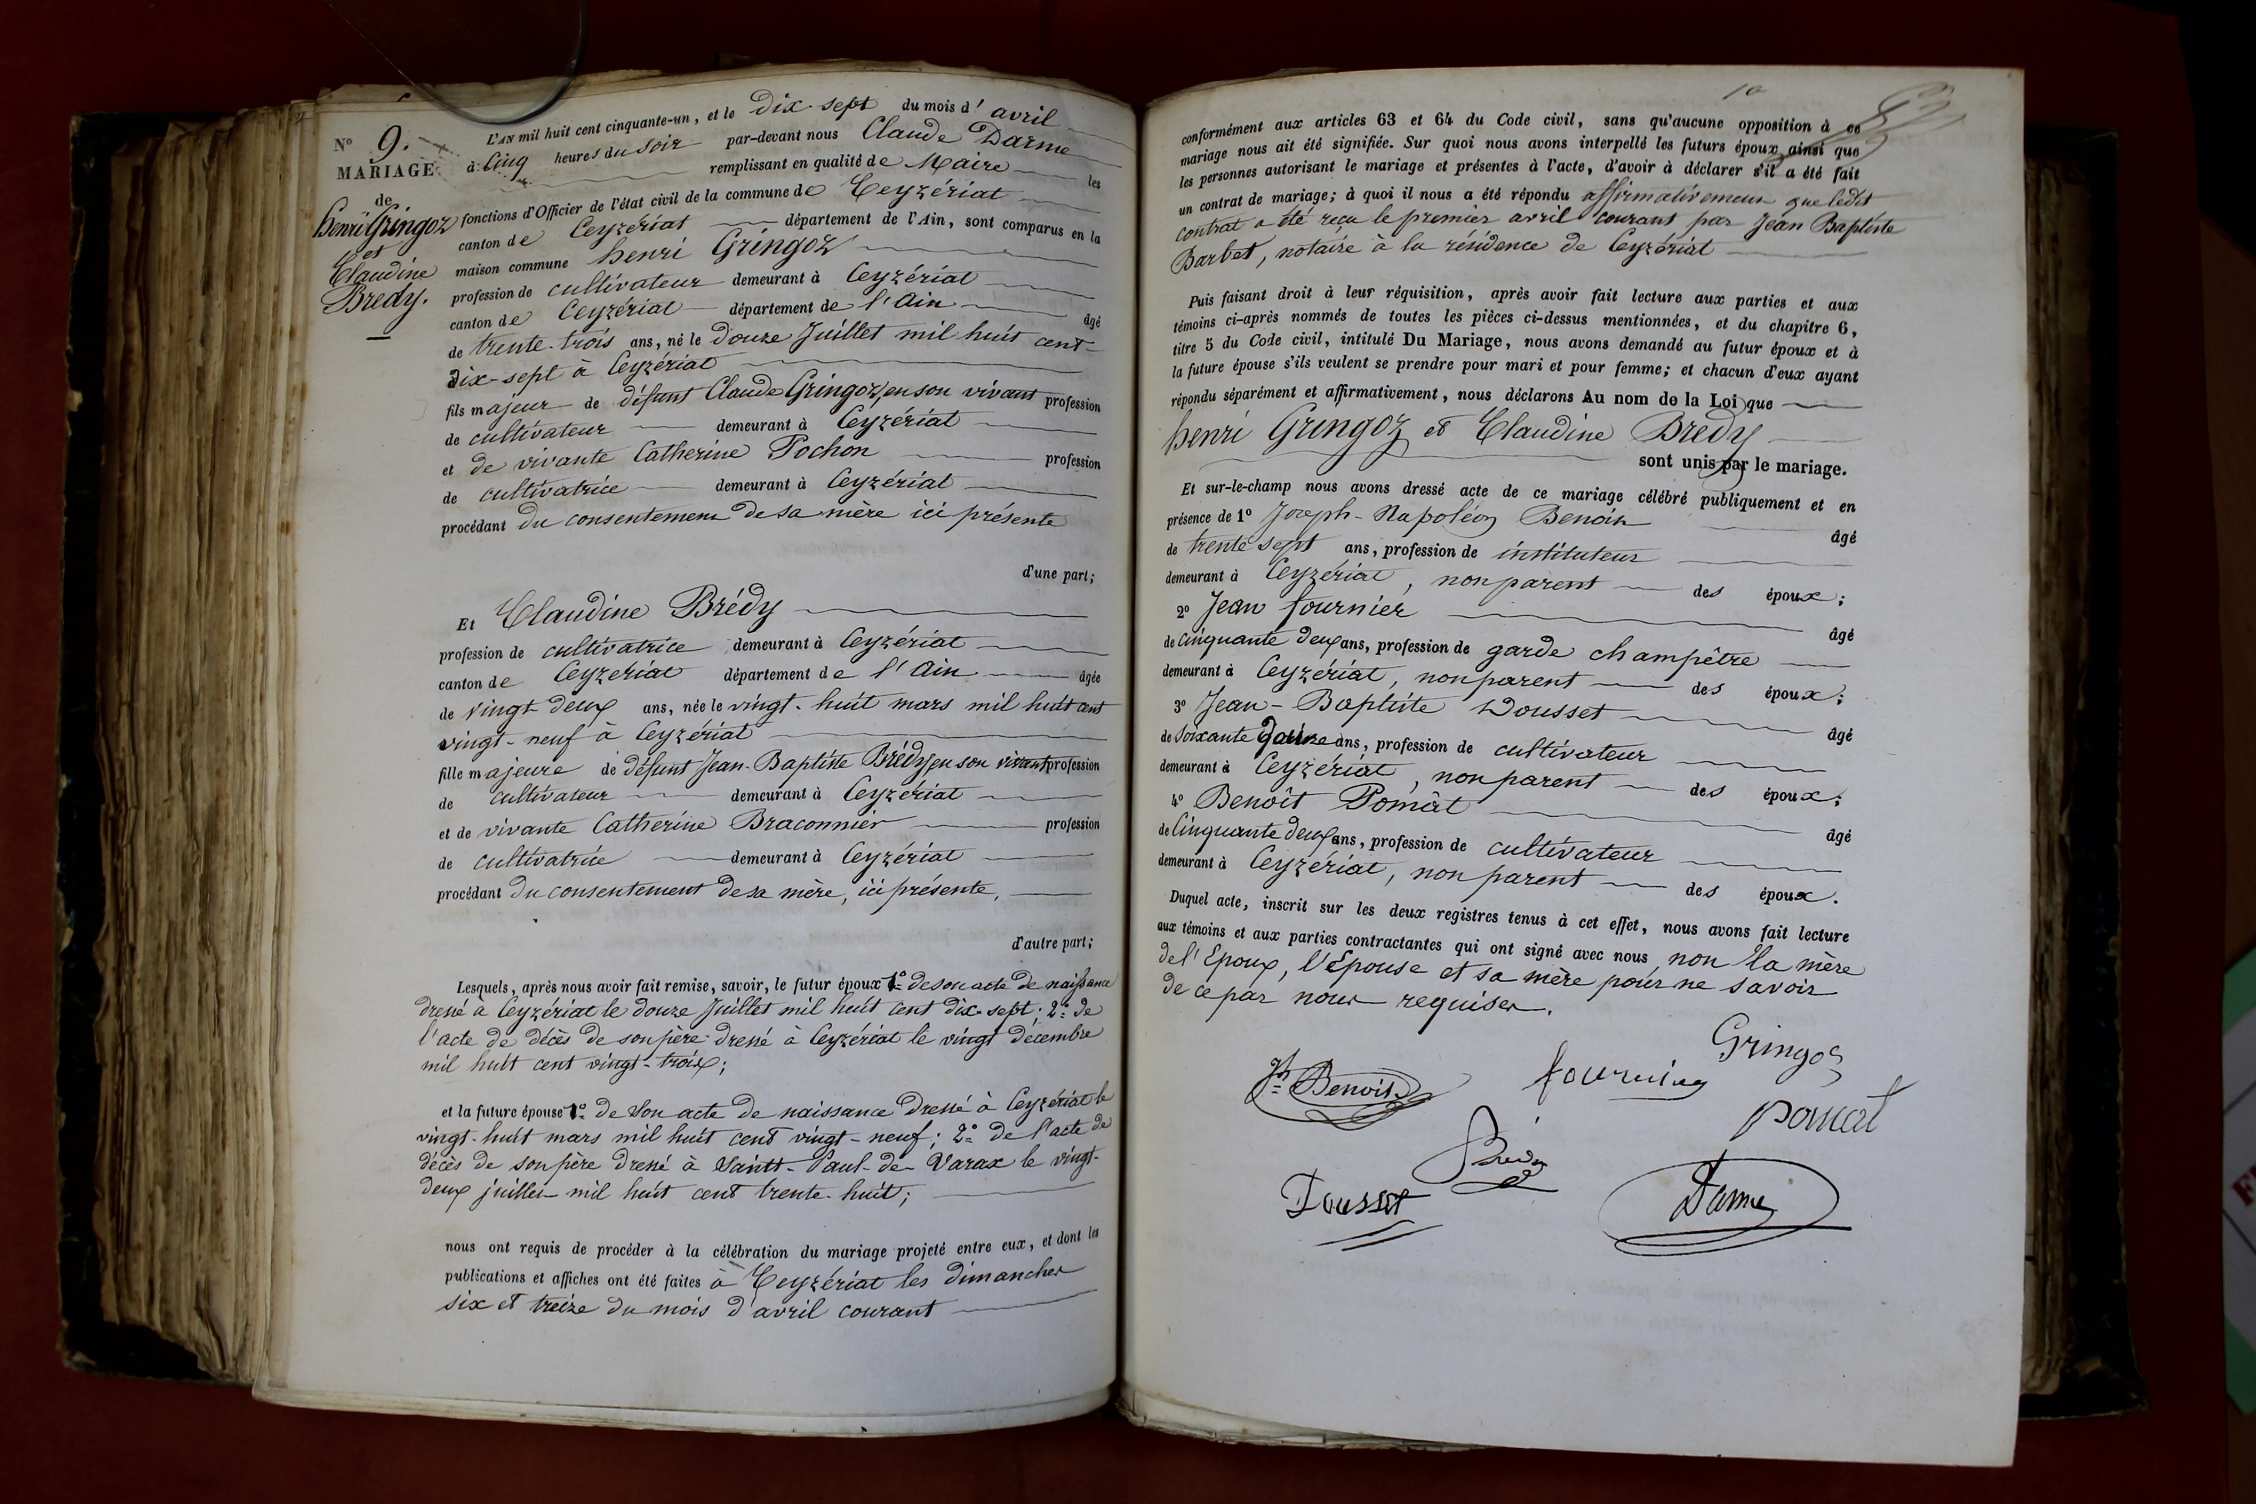 N° 9.
MARIAGE
de
henri Gringoz
et
Claudine
Bredy.
L'AN mil huit cent cinquante-un, et le Dix-sept du mois d'avril
à Cinq heures du soir par-devant nous Claude Darme
remplissant en qualité de Maire les
fonctions d'Officier de l'état civil de la commune de Ceyzériat
canton de Ceyzériat département de l'Ain, sont comparus en la
maison commune henri Gringoz
profession de cultivateur demeurant à Ceyzériat
canton de Ceyzériat département de l'Ain âgé
de trente-trois ans, né le Douze Juillet mil huit cent
dix-sept à Ceyzériat
fils majeur de défunt Claude Gringoz, en son vivant profession
de cultivateur demeurant à Ceyzériat
et de vivante Catherine Pochon profession
de cultivatrice demeurant à Ceyzériat
procédant du consentement de sa mère ici présente
d'une part;
Et Claudine Brédy
profession de cultivatrice demeurant à Ceyzériat
canton de Ceyzériat département de l'Ain âgée
de vingt deux ans, née le vingt-huit mars mil huit cent
vingt-neuf à Ceyzériat
fille majeure de défunt Jean-Baptiste Brédy, en son vivant profession
de cultivateur demeurant à Ceyzériat
et de vivante Catherine Braconnier profession
de cultivatrice demeurant à Ceyzériat
procédant du consentement de sa mère, ici présente,
d'autre part;
Lesquels, après nous avoir fait remise, savoir, le futur époux 1° de son acte de naissance
dressé à Ceyzériat le douze Juillet mil huit cent dix-sept; 2° de
l'acte de décès de son père dressé à Ceyzériat le vingt décembre
mil huit cent vingt-trois;
et la future épouse 1° de son acte de naissance dressé à Ceyzériat le
vingt-huit mars mil huit cent vingt-neuf; 2° de l'acte de
décès de son père dressé à Saint-Paul-de-Varax le vingt-
deux juillet mil huit cent trente-huit;
nous ont requis de procéder à la célébration du mariage projeté entre eux, et dont les
publications et affiches ont été faites à Ceyzériat les dimanches
six et treize du mois d'avril courant
10
conformément aux articles 63 et 64 du Code civil, sans qu'aucune opposition à ce
mariage nous ait été signifiée. Sur quoi nous avons interpellé les futurs époux ainsi que
les personnes autorisant le mariage et présentes à l'acte, d'avoir à déclarer s'il a été fait
un contrat de mariage; à quoi il nous a été répondu affirmativement que ledit
contrat a été reçu le premier avril courant par Jean Baptiste
Barbet, notaire à la résidence de Ceyzériat
Puis faisant droit à leur réquisition, après avoir fait lecture aux parties et aux
témoins ci-après nommés de toutes les pièces ci-dessus mentionnées, et du chapitre 6,
titre 5 du Code civil, intitulé Du Mariage, nous avons demandé au futur époux et à
la future épouse s'ils veulent se prendre pour mari et pour femme; et chacun d'eux ayant
répondu séparément et affirmativement, nous déclarons Au nom de la Loi que
henri Gringoz et Claudine Bredy
sont unis par le mariage.
Et sur-le-champ nous avons dressé acte de ce mariage célébré publiquement et en
présence de 1° Joseph-Napoléon Benoin
âgé
de trente sept ans, profession de instituteur
demeurant à Ceyzériat, non parent des époux;
2° Jean fournier
âgé
de Cinquante deux ans, profession de garde champêtre
demeurant à Ceyzériat, non parent des époux;
3° Jean-Baptiste Dousset
âgé
de Soixante ans, profession de cultivateur
demeurant à Ceyzériat, non parent des époux;
4° Benoît Pomat
âgé
de Cinquante deux ans, profession de cultivateur
demeurant à Ceyzériat, non parent des époux.
Duquel acte, inscrit sur les deux registres tenus à cet effet, nous avons fait lecture
aux témoins et aux parties contractantes qui ont signé avec nous, non la mère
de l'Epoux, l'Epouse et sa mère pour ne savoir
de ce par nous requises.
Gringoz
Jh Benoit
fournier
pomat
Dousset
Darme